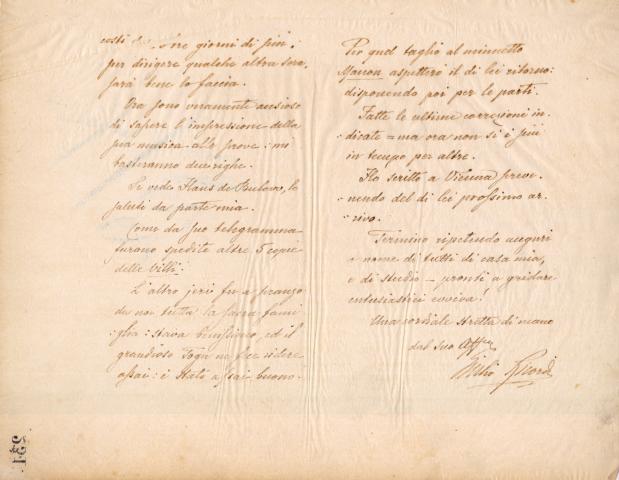 costì due o tre giorni di più,
per dirigere qualche altra sera,
sarà bene lo faccia.
Ora sono veramente ansioso
di sapere l'impressione della
sua musica alle prove: mi
basteranno due righe.
Se vede Hans de Bulow, lo
saluti da parte mia.
Come da suo telegramma
furano spedite altre 5 copie
delle Villi.
L'altro jeri fu a pranzo
da noi tutta la sacra fami-
glia: stava benissimo, ed il
grandioso Togn ne fece ridere
assai: è stato assai buono.
Per quel taglio al minuetto
Manon aspetterò il di lei ritorno:
disponendo poi per le parti.
Fatte le ultime correzioni in-
dicate = ma ora non si è più
in tempo per altre.
Ho scritto a Vienna preve-
nendo del di lei prossimo ar-
rivo.
Termino ripetendo auguri
a nome di tutti di casa mia,
e di studio - pronti a gridare
entusiastici evviva!
Una cordiale stretta di mano
dal suo aff
Giulio Ricordi
231